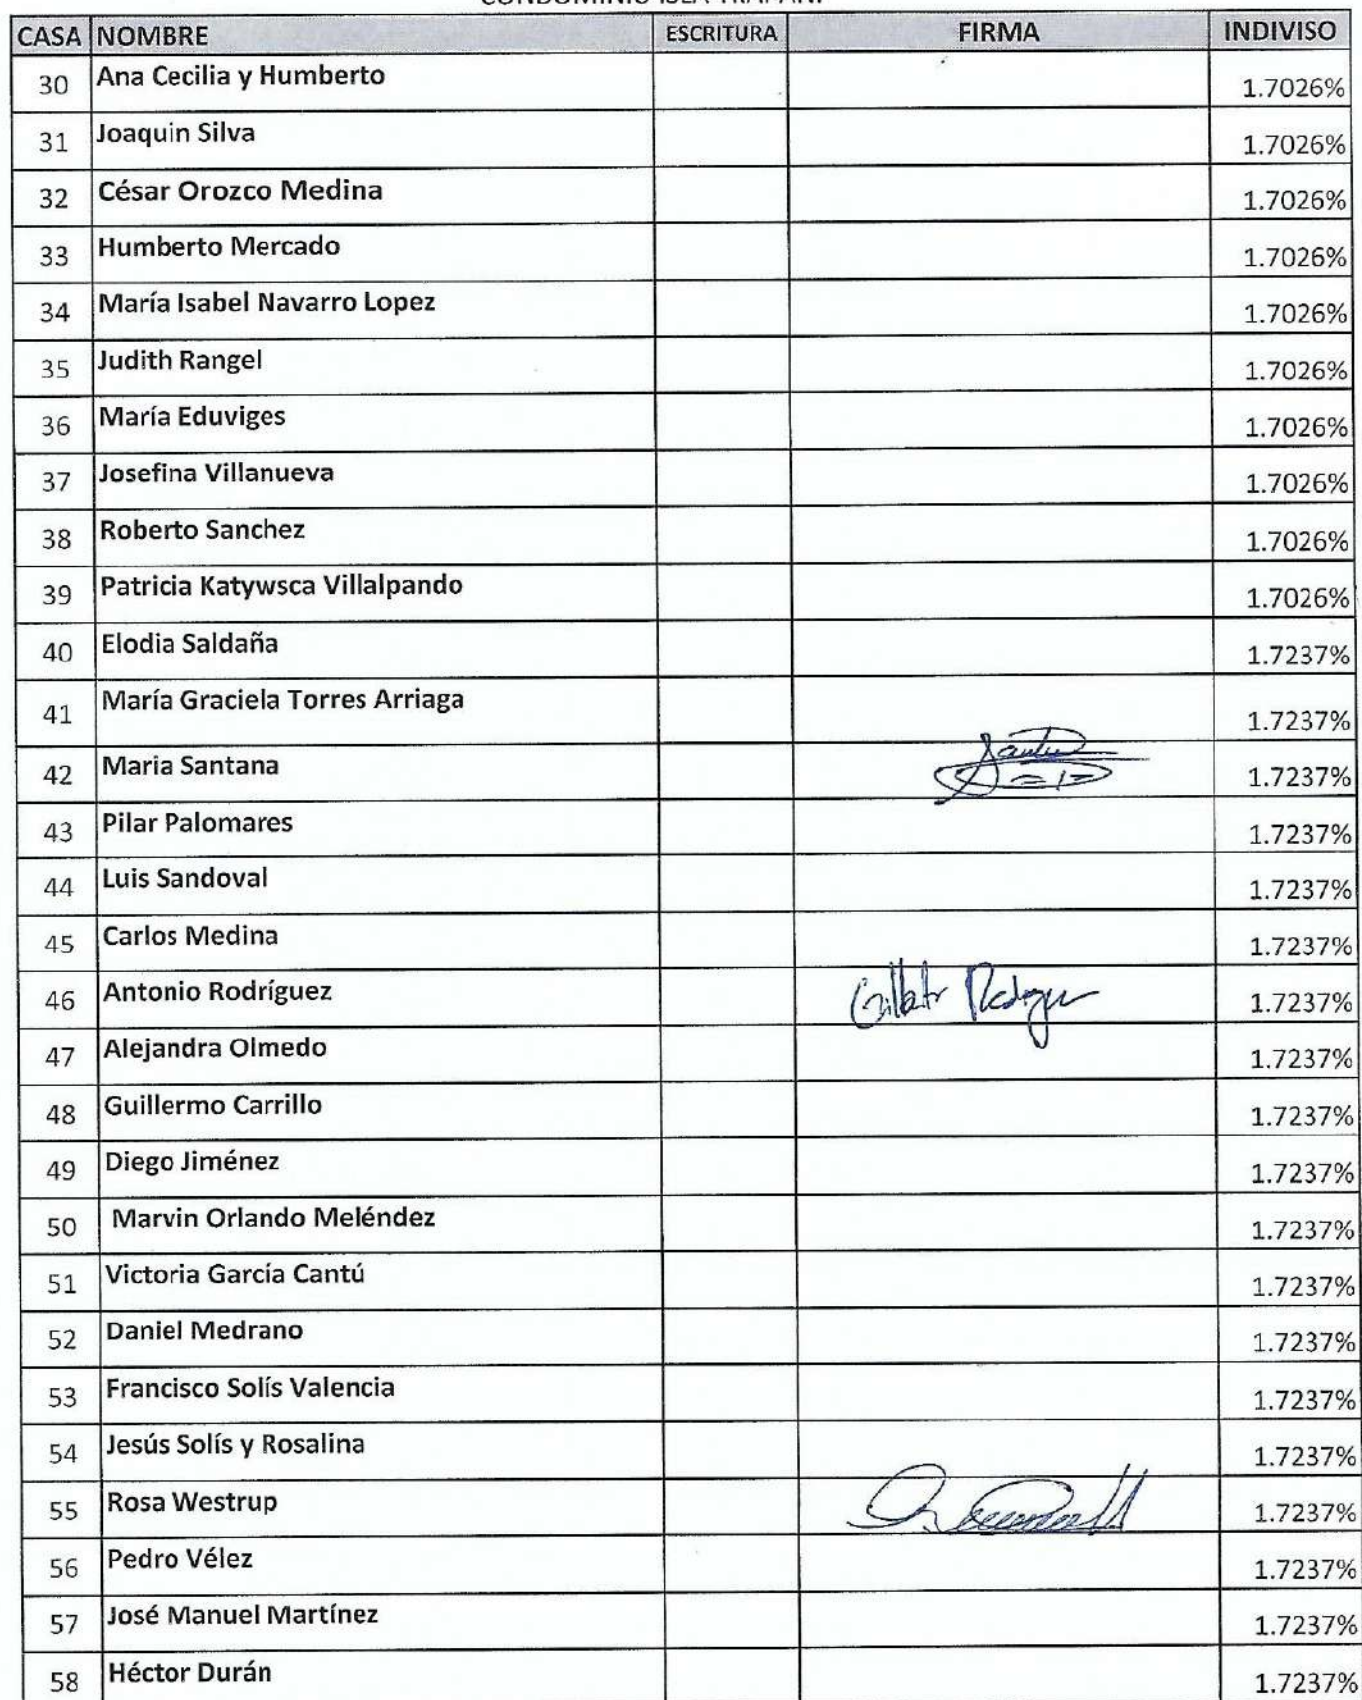 CONDOMINIO ISLA TRAPANI
CASA NOMBRE ESCRITURA FIRMA INDIVISO
30 Ana Cecilia y Humberto 1.7026%
31 Joaquin Silva 1.7026%
32 César Orozco Medina 1.7026%
33 Humberto Mercado 1.7026%
34 María Isabel Navarro Lopez 1.7026%
35 Judith Rangel 1.7026%
36 María Eduviges 1.7026%
37 Josefina Villanueva 1.7026%
38 Roberto Sanchez 1.7026%
39 Patricia Katywsca Villalpando 1.7026%
40 Elodia Saldaña 1.7237%
41 María Graciela Torres Arriaga 1.7237%
42 Maria Santana 1.7237%
43 Pilar Palomares 1.7237%
44 Luis Sandoval 1.7237%
45 Carlos Medina 1.7237%
46 Antonio Rodríguez 1.7237%
47 Alejandra Olmedo 1.7237%
48 Guillermo Carrillo 1.7237%
49 Diego Jiménez 1.7237%
50 Marvin Orlando Meléndez 1.7237%
51 Victoria García Cantú 1.7237%
52 Daniel Medrano 1.7237%
53 Francisco Solís Valencia 1.7237%
54 Jesús Solís y Rosalina 1.7237%
55 Rosa Westrup 1.7237%
56 Pedro Vélez 1.7237%
57 José Manuel Martínez 1.7237%
58 Héctor Durán 1.7237%